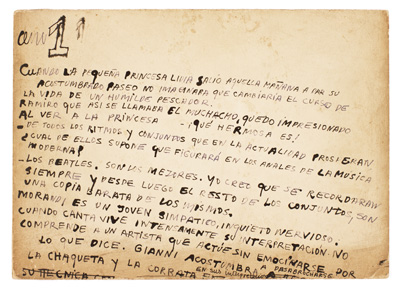 1
CUANDO LA PEQUEÑA PRINCESA LIVIA SALIÓ AQUELLA MAÑANA A DAR SU
ACOSTUMBRADO PASEO NO IMAGINARA QUE CAMBIARÍA EL CURSO DE
LA VIDA DE UN HUMILDE PESCADOR.
RAMIRO QUE ASI SE LLAMABA EL MUCHACHO, QUEDO IMPRESIONADO
AL VER A LA PRINCESA - ¡QUÉ HERMOSA ES!
- DE TODOS LOS RITMOS Y CONJUNTOS QUE EN LA ACTUALIDAD PROLIFERAN
¿CUAL DE ELLOS SUPONE QUE FIGURARÁ EN LOS ANALES DE LA MUSICA
MODERNA?
- LOS BEATLES. SON LOS MEJORES. YO CREO QUE SE RECORDARAN
SIEMPRE Y DESDE LUEGO EL RESTO DE LOS CONJUNTOS, SON
UNA COPIA BARATA DE LOS MISMOS.
MORANDI ES UN JOVEN SIMPATICO, INQUIETO NERVIOSO.
CUANDO CANTA VIVE INTENSAMENTE SU INTERPRETACIÓN. NO
COMPRENDE A UN ARTISTA QUE ACTÚE SIN EMOCINARSE POR
LO QUE DICE. GIANNI ACOSTUMBRA A DESABROCHARSE
LA CHAQUETA Y LA CORBATA EN SUS
SU TECNICA